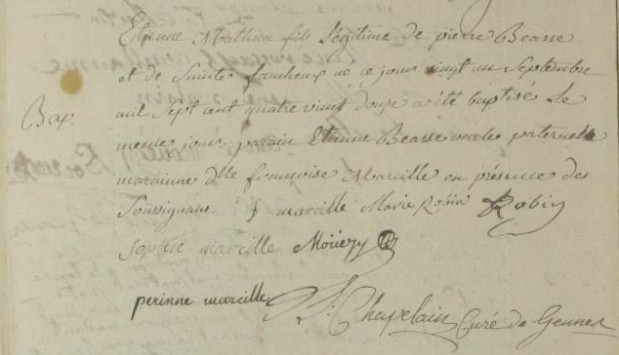 Etienne Mathieu fils légitime de pierre Beasse
et de Sainte ne ce jour vingt un Septembre
mil Sept cent quatre vingt douze a été baptisé le
Bap.
même jour, parain Etienne Beasse oncle paternelle
marainne dlle françoise Marcille en présence des
Soussignans. f marcille Marie Robin Robin
Sophie marcille Moüezy
perinne marcille Chapelain Curé de Gennes